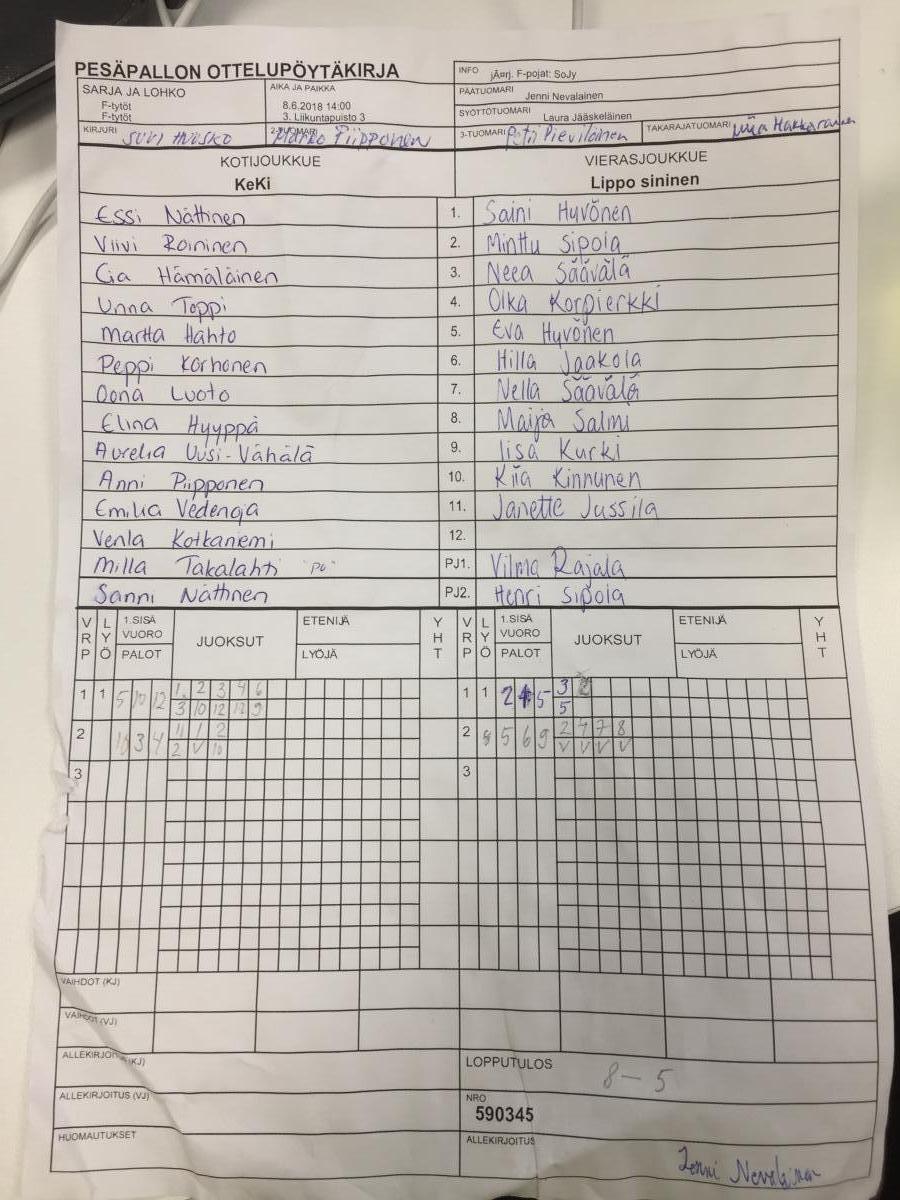 PESÄPALLON OTTELUPÖYTÄKIRJA
SARJA JA LOHKO
F-tytöt
F-tytöt
AIKA JA PAIKKA
8.6.2018 14:00
3. Liikuntapuisto 3
INFO jÃ¤rj. F-pojat: SoJy
PÄÄTUOMARI Jenni Nevalainen
SYÖTTÖTUOMARI Laura Jääskeläinen
KIRJURI SUVI
2-TUOMARI Marko Piipponen
3-TUOMARI
TAKARAJATUOMARI
KOTIJOUKKUE VIERASJOUKKUE
KeKi Lippo sininen
Essi Nättinen 1. Saini Hyvönen
Viivi Roininen 2. Minttu Sipola
Cia Hämäläinen 3. Neea Säävälä
Unna Toppi 4. Olka Korpierkki
Martta Hahto 5. Eva Hyvönen
Peppi Korhonen 6. Hilla Jaakola
Oona Luoto 7. Nella Säävälä
Elina Hyyppä 8. Maija Salmi
Aurelia Uusi-Vähälä 9. Iisa Kurki
Anni Piipponen 10. Kiia Kinnunen
Emilia Vedenoja 11. Janette Jussila
Venla Kotkaniemi 12.
Milla Takalahti PJ1. Vilma Rajala
Sanni Nättinen PJ2. Henri Sipola
VRP LYÖ 1.SISÄ VUORO PALOT JUOKSUT ETENIJÄ LYÖJÄ YHT VRP LYÖ 1.SISÄ VUORO PALOT JUOKSUT ETENIJÄ LYÖJÄ YHT
1 1 5 10 12 1 2 3 4 6 1 1 2 4 5 3
3 10 12 12 9 5
2 3 4 11 1 2 2 8 5 6 9 2 4 7 8
2 V 10 V V V V
3 3
VAIHDOT (KJ)
VAIHDOT (VJ)
ALLEKIRJOITUS (KJ) LOPPUTULOS 8-5
ALLEKIRJOITUS (VJ) NRO
590345
HUOMAUTUKSET ALLEKIRJOITUS
Jenni Nevalainen